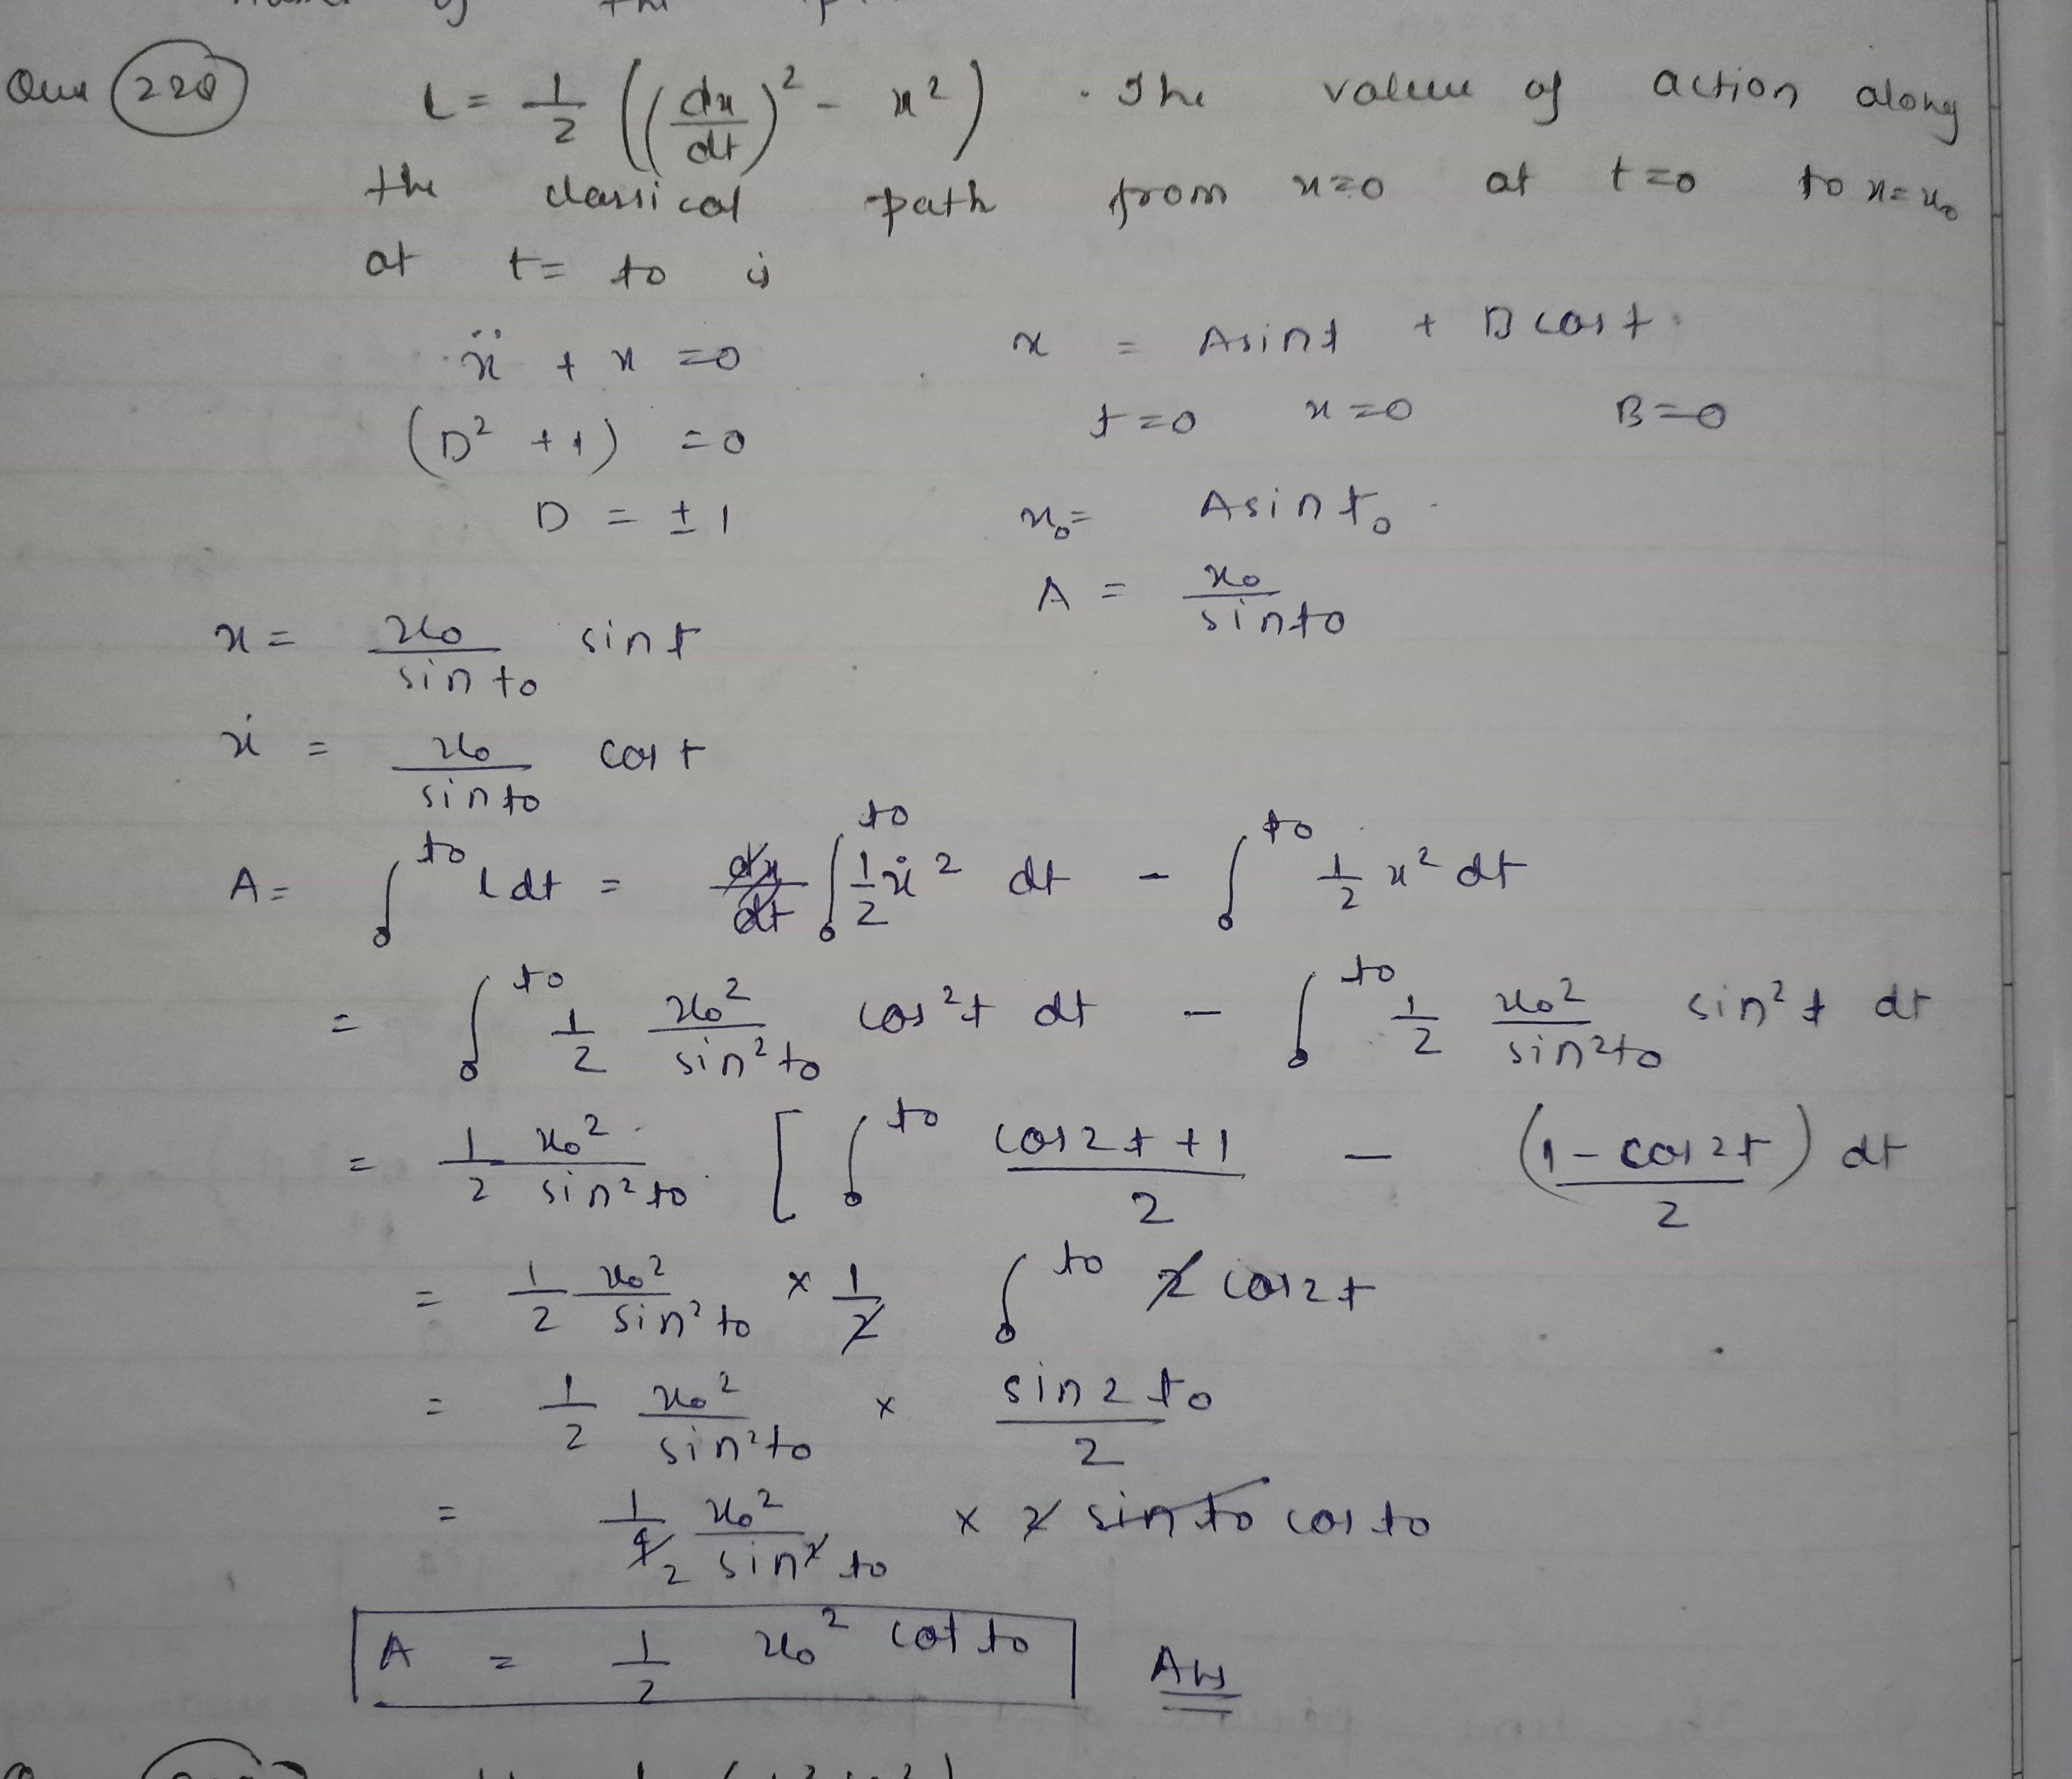 Que 228 L = 1/2 ((dx/dt)² - x²) . The value of action along
the classical path from x=0 at t=0 to x=x₀
at t= t₀ is
ẍ + x =0
x = Asint + Bcost.
(D² +1) =0
t=0 x=0 B=0
D = ±1
x₀= Asint₀
A = x₀/sint₀
x = x₀/sint₀ sint
ẋ = x₀/sint₀ cost
A= ∫₀^t₀ Ldt = ∫₀^t₀ 1/2 ẋ² dt - ∫₀^t₀ 1/2 x² dt
= ∫₀^t₀ 1/2 x₀²/sin²t₀ cos²t dt - ∫₀^t₀ 1/2 x₀²/sin²t₀ sin²t dt
= 1/2 x₀²/sin²t₀ [ ∫₀^t₀ cos2t+1/2 - (1-cos2t)/2 dt
= 1/2 x₀²/sin²t₀ × 1/2 ∫₀^t₀ 2 cos2t
= 1/2 x₀²/sin²t₀ × sin2t₀/2
= 1/4 2 x₀²/sin²t₀ × 2 sint₀ cost₀
A = 1/2 x₀² cott₀ Ans